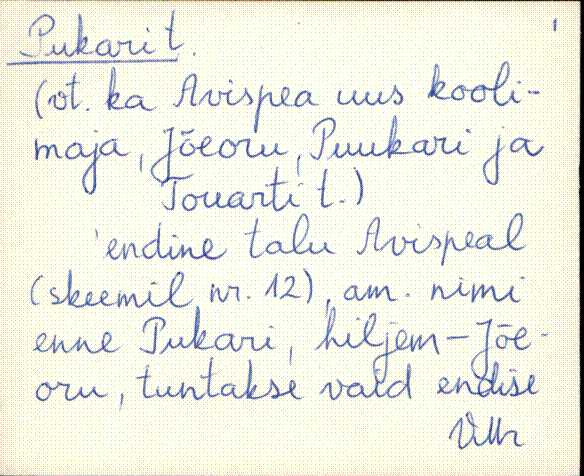 Pukari t.
(vt. ka Avispea uus kooli-
maja, Jõeoru, Puukari ja
Touarti t.)
'endine talu Avispeal
(skeemil nr. 12), am. nimi
enne Pukari, hiljem - Jõe-
oru, tuntakse vaid endise